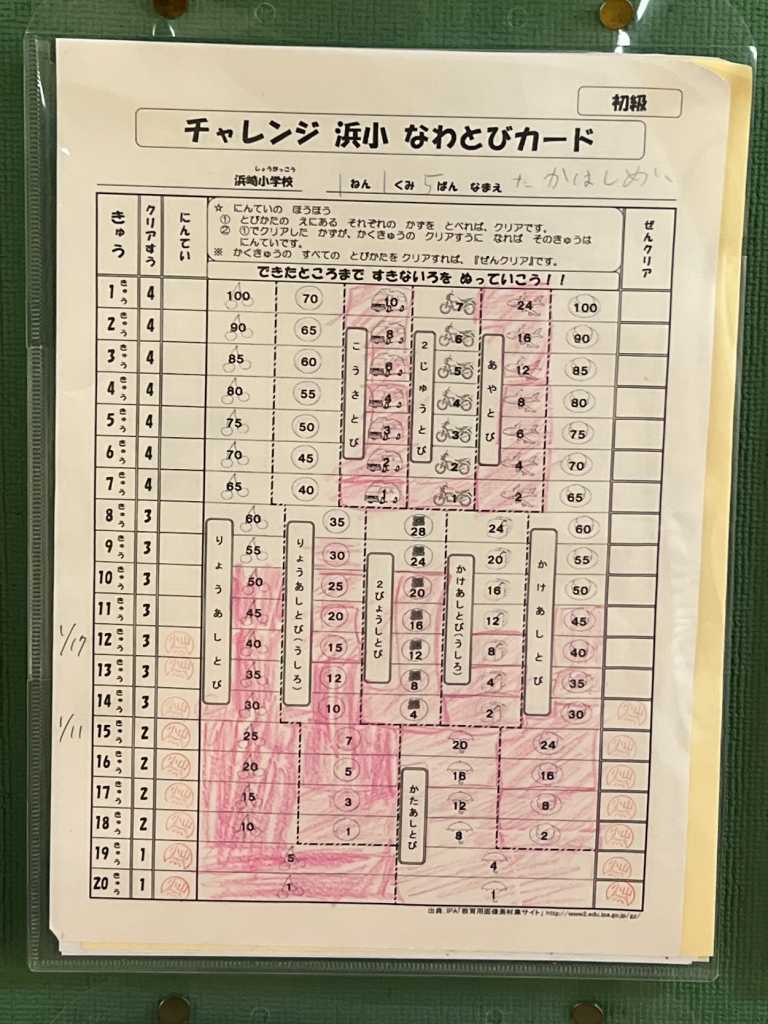 初級
チャレンジ 浜小 なわとびカード
しょうがっこう
浜崎小学校 1 ねん 1 くみ 5 ばん なまえ たかはしめい
きゅう クリアすう にんてい ぜんクリア
☆ にんていの ほうほう
① とびかたの えにある それぞれの かずを とべれば、クリアです。
② ①でクリアした かずが、かくきゅうの クリアすうに なれば そのきゅうは
にんていです。
※ かくきゅうの すべての とびかたを クリアすれば、『ぜんクリア』です。
できたところまで すきないろを ぬっていこう!!
1きゅう 4 100 70 10 7 24 100
2きゅう 4 90 65 8 6 16 90
3きゅう 4 85 60 6 5 12 85
4きゅう 4 80 55 4 4 8 80
5きゅう 4 75 50 3 3 6 75
6きゅう 4 70 45 2 2 4 70
7きゅう 4 65 40 1 1 2 65
こうさとび
2じゅうとび
あやとび
8きゅう 3 60 35 28 24 60
9きゅう 3 55 30 24 20 55
10きゅう 3 50 25 20 16 50
11きゅう 3 45 20 16 12 45
1/17 12きゅう 3 40 15 12 8 40
13きゅう 3 35 12 8 4 35
14きゅう 3 30 10 4 2 30
りょうあしとび
りょうあしとび(うしろ)
2びょうしとび
かけあしとび(うしろ)
かけあしとび
1/11 15きゅう 2 25 7 20 24
16きゅう 2 20 5 16 16
17きゅう 2 15 3 12 8
18きゅう 2 10 1 8 2
かたあしとび
19きゅう 1 5 4
20きゅう 1 1 1
出典 IPA「教育用画像素材集サイト」http://www2.edu.ipa.go.jp/gz/